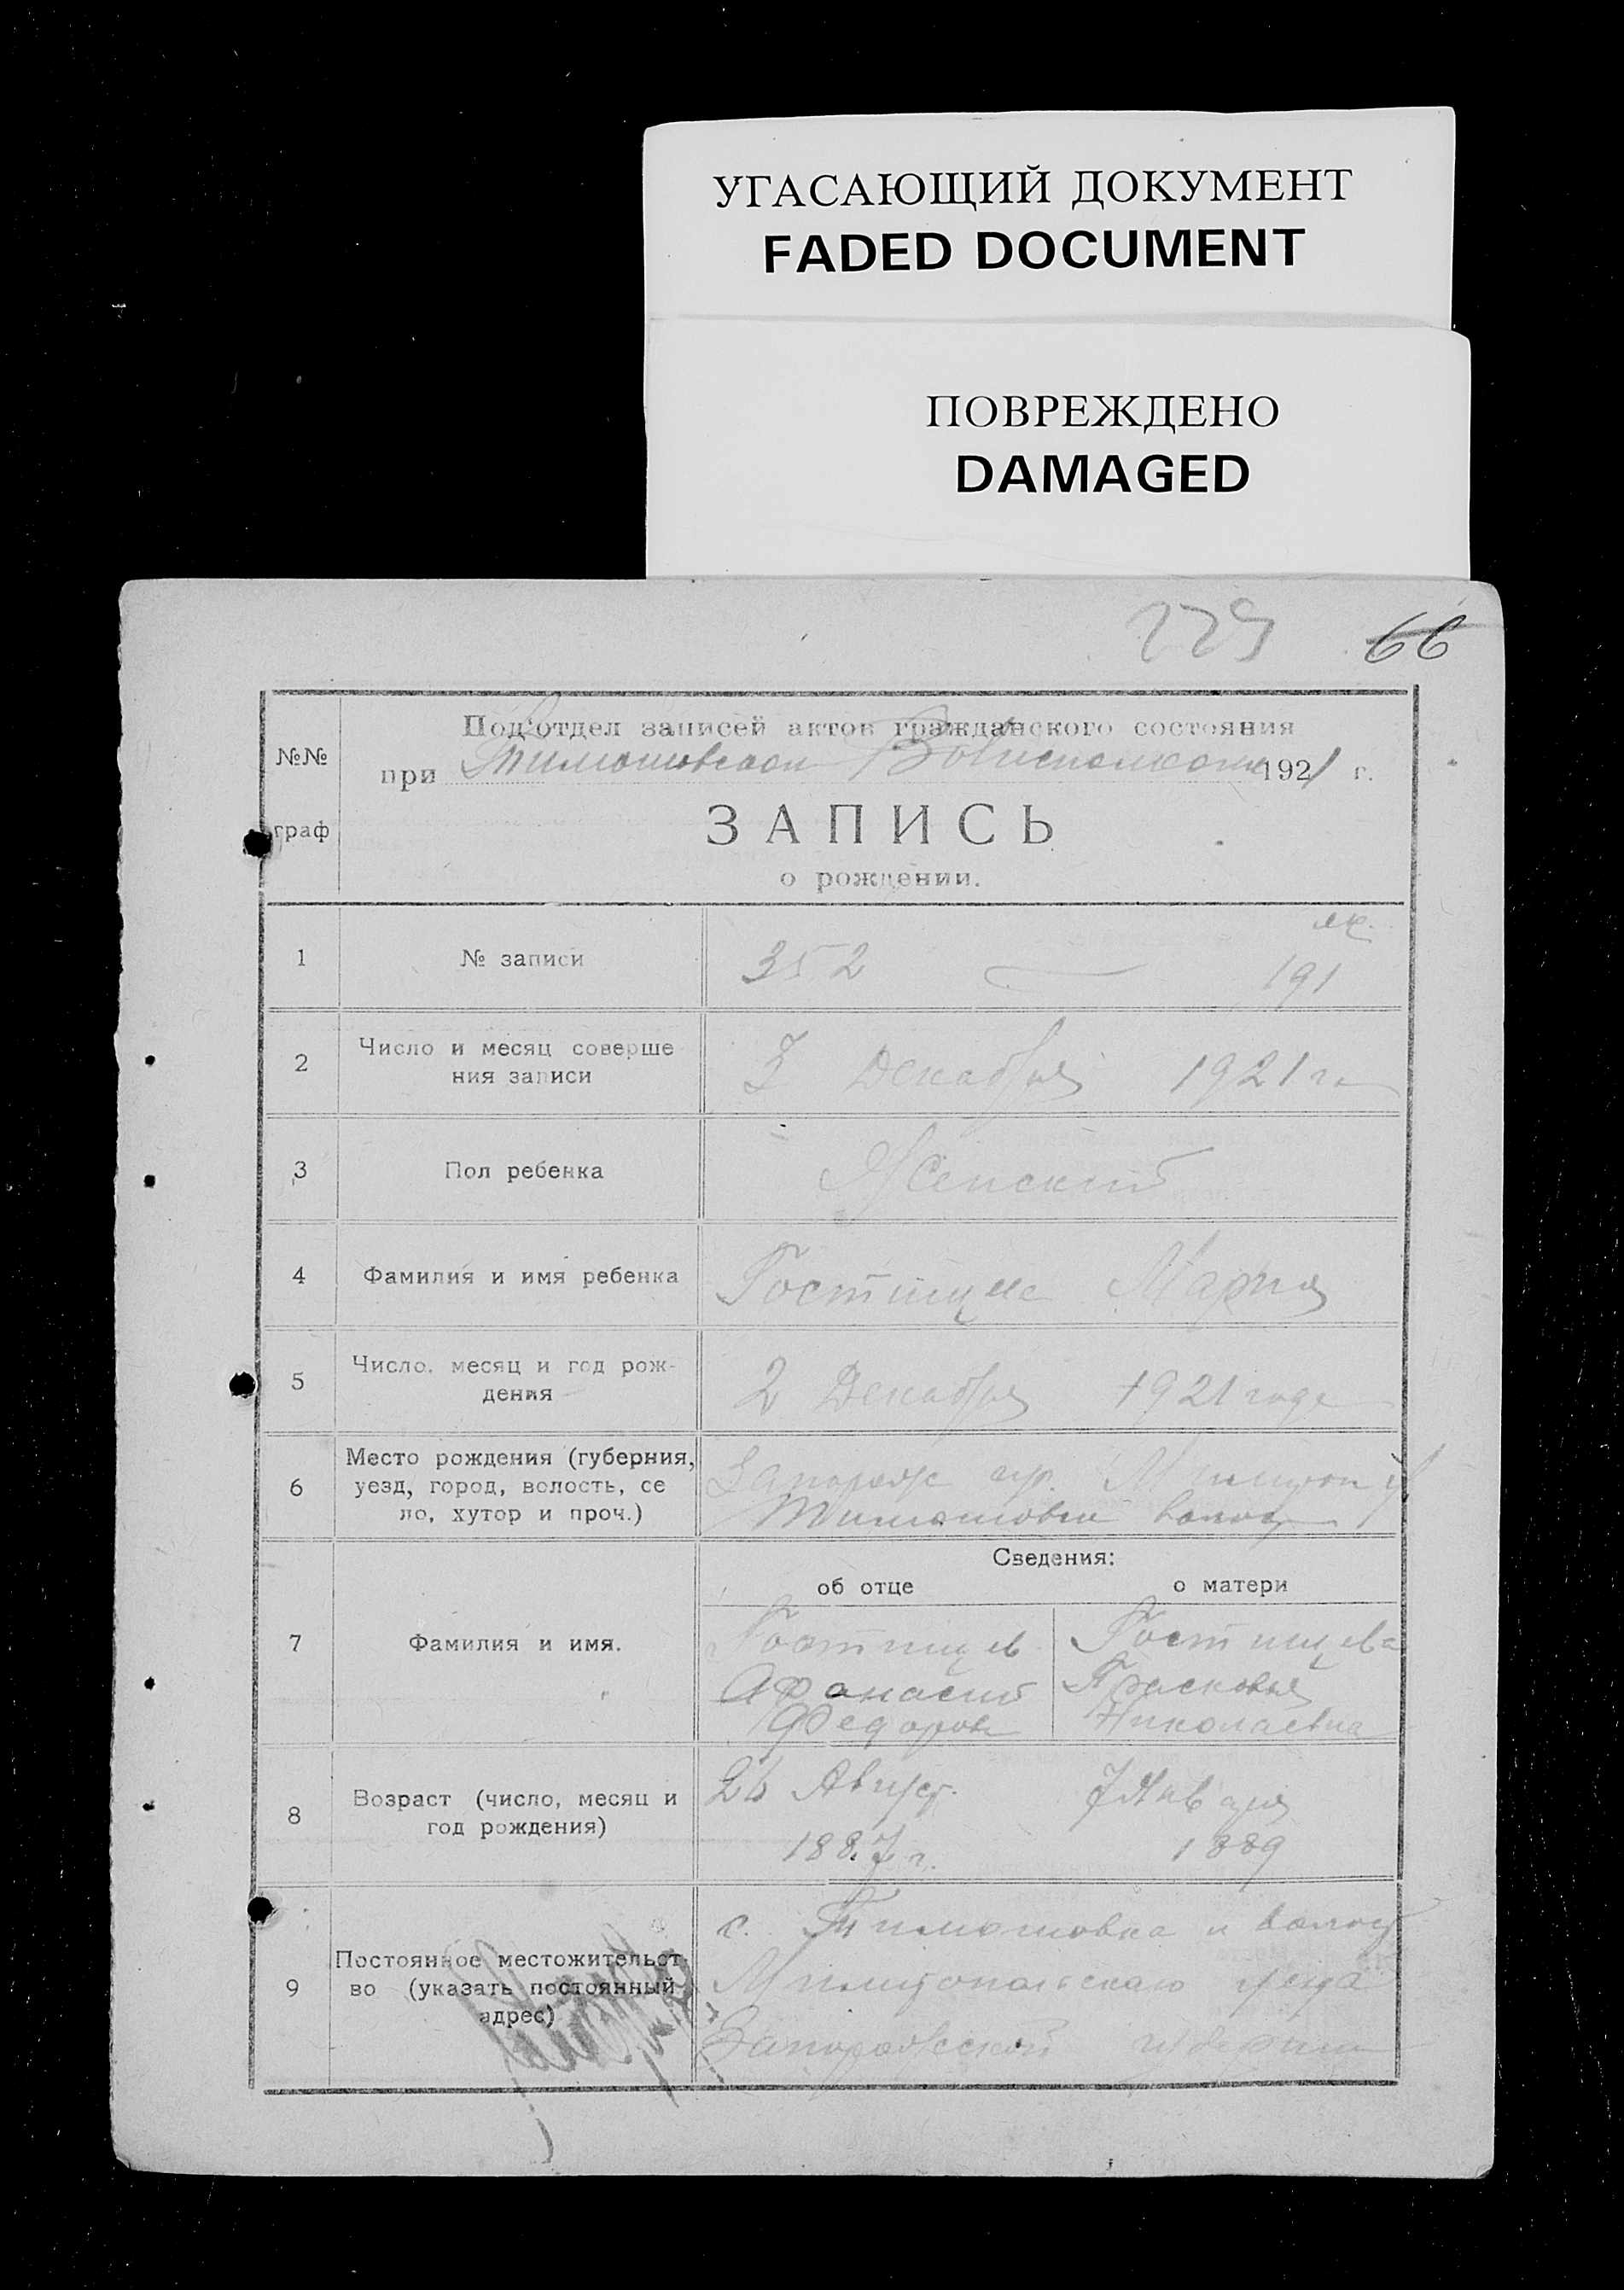 УГАСАЮЩИЙ ДОКУМЕНТ
FADED DOCUMENT
ПОВРЕЖДЕНО
DAMAGED
229 66
Под'отдел записей актов гражданского состояния
№№
при 1921 г.
ЗАПИСЬ
граф
о рождении.
1 № записи 352 191
2 Число и месяц соверше
ния записи
3 Декабря 1921 г
3 Пол ребенка Женский
4 Фамилия и имя ребенка Гостищева Мария
5 Число. месяц и год рож-
дения
2 Декабря 1921 года
6 Место рождения (губерния,
уезд, город, волость, се
ло, хутор и проч.)
Запорож гу.
Тимошовки волос
Сведения:
об отце о матери
7 Фамилия и имя.
Гостищев Гостищева
Афанасий Прасковья
Федоров Николаевна
8 Возраст (число, месяц и
год рождения)
26 Август. 7 Января
1887 г. 1889
9 Постоянное местожительст-
во (указать постоянный
адрес)
с. Тимошовка и волос
Мелитопольскаго уезда
Запорожской губернии